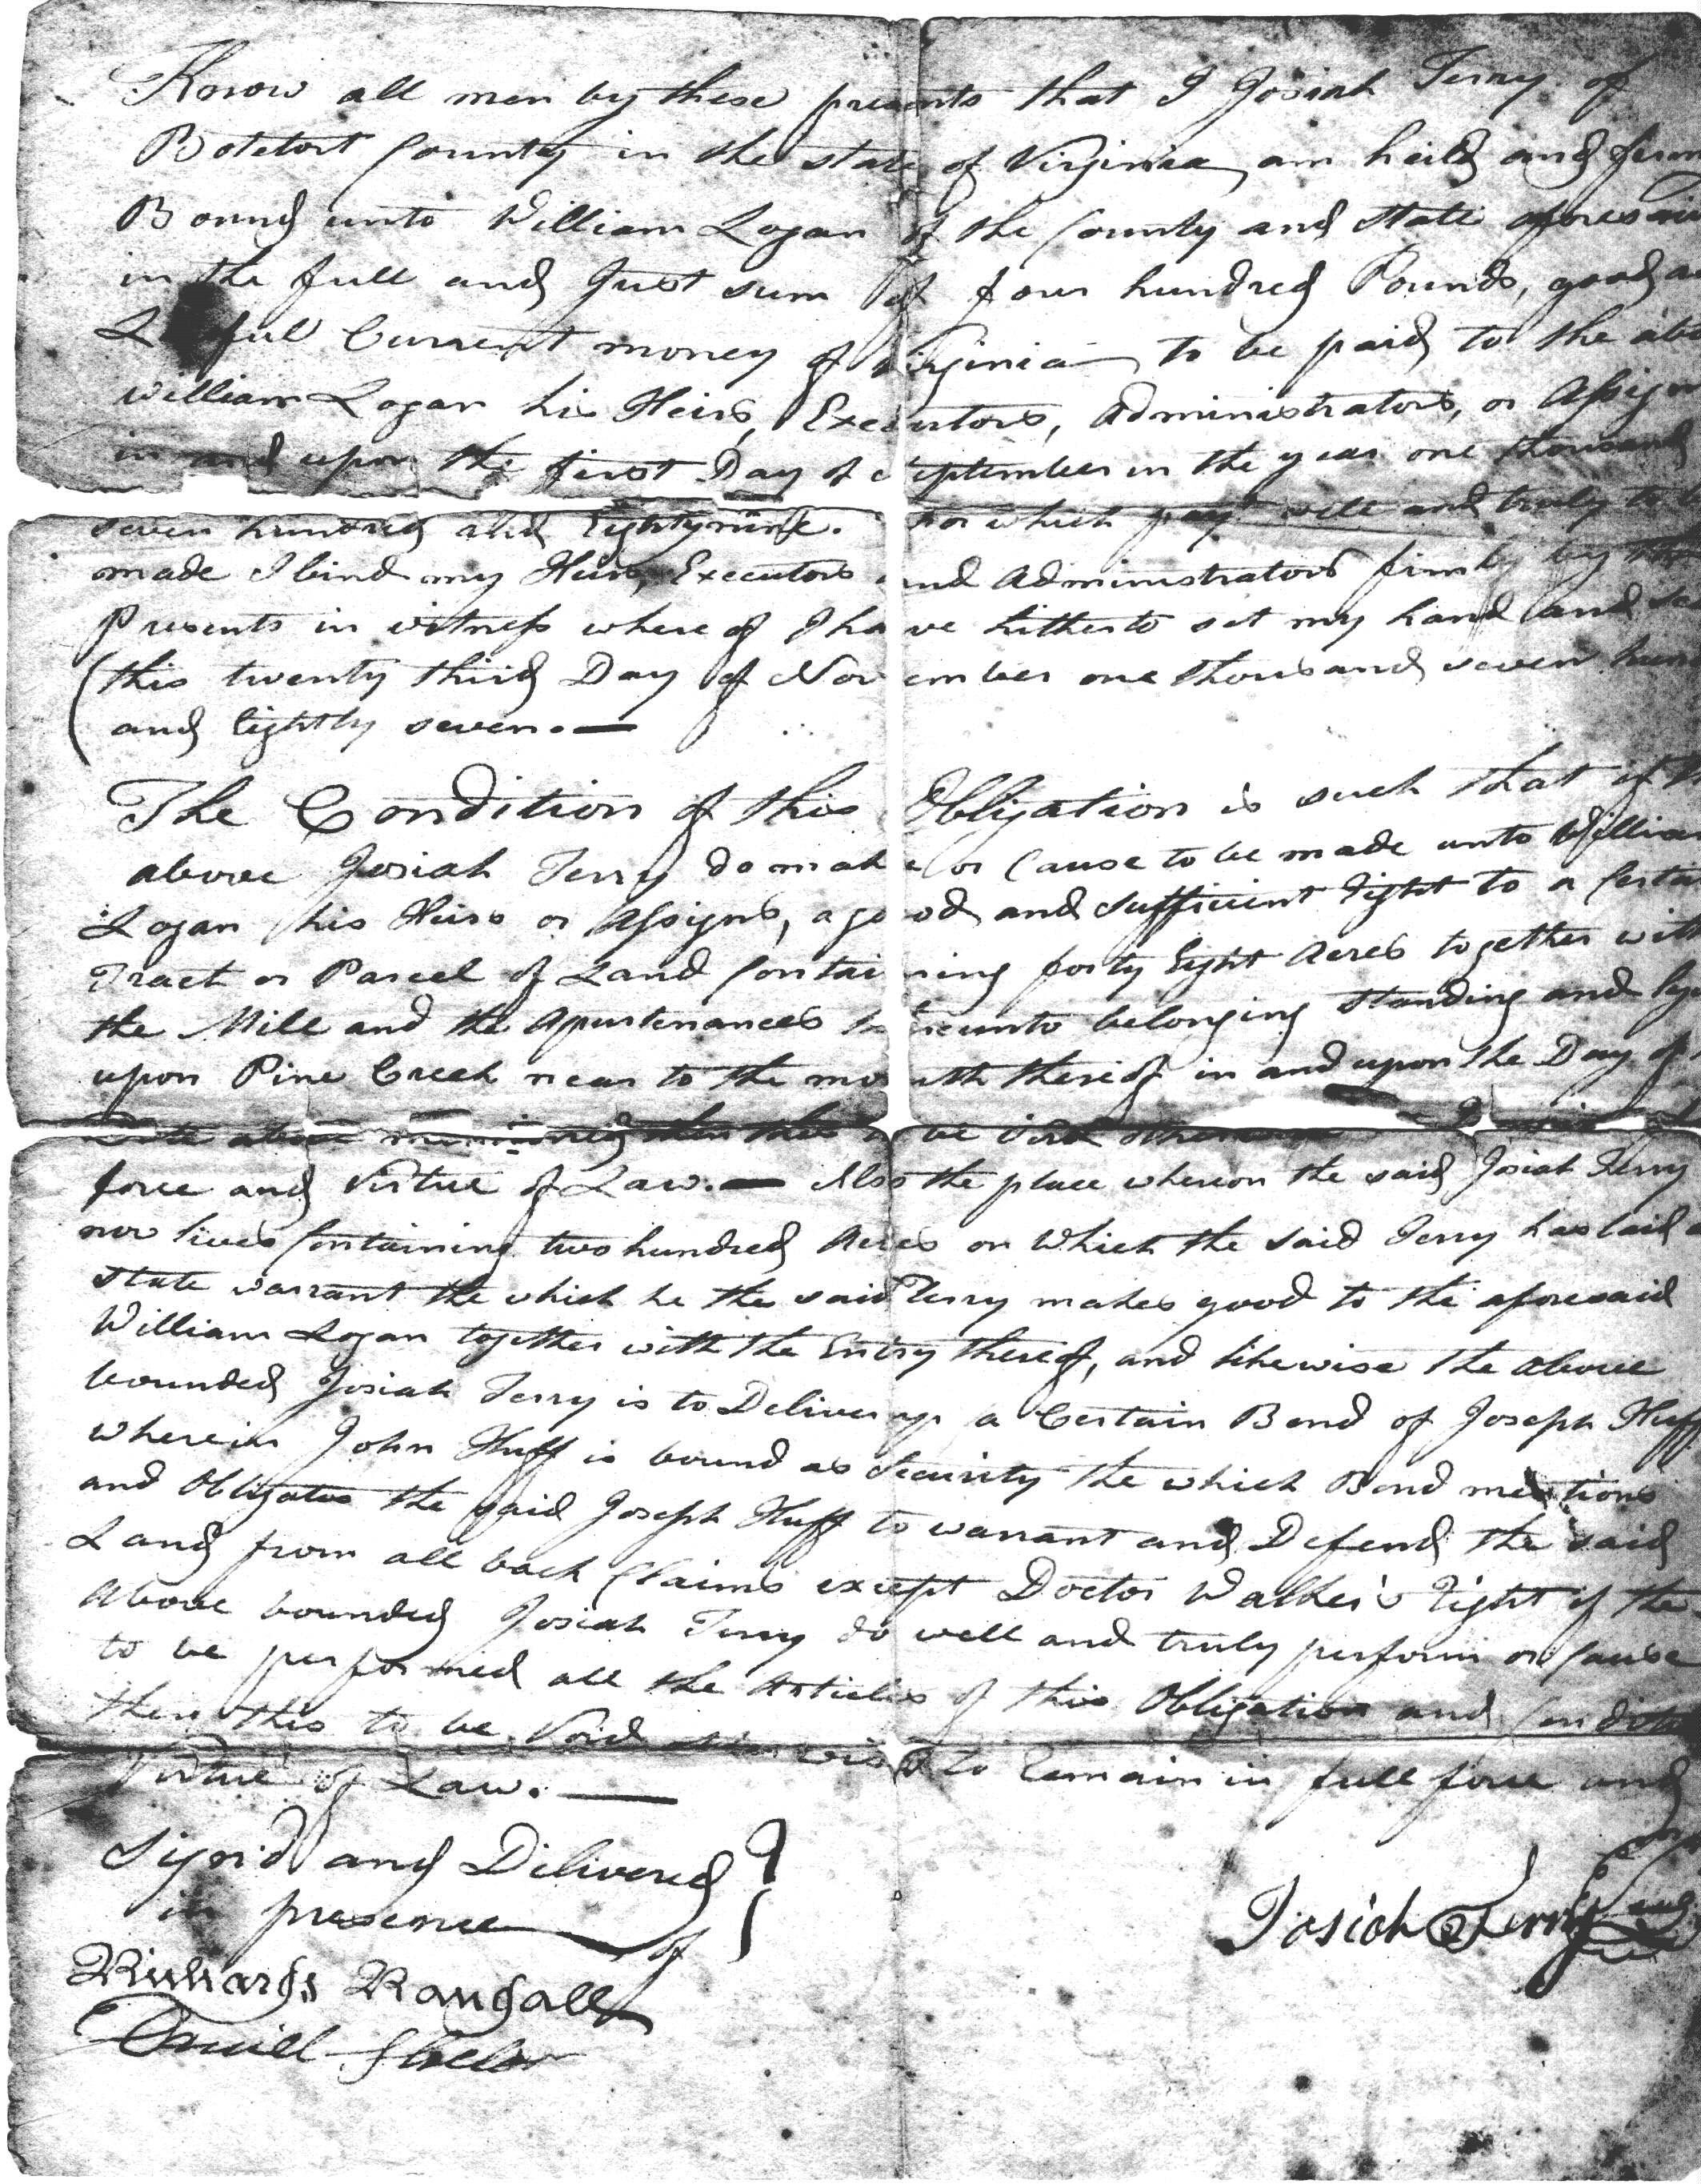 Know all men by these presents that I Josiah Terry of
Botetort County in the state of Virginia am heild and firm
Bound unto William Logan of the County and state aforesaid
in the full and Just sum of four hundred Pounds, good
Lawful Current money of Virginia to be paid to the abo
William Logan his Heirs, Executors, Administrators, or Assigns
in and upon the first Day of September in the year one thousand
seven hundred and Eightynine. for which payt well and truly to
made I bind my Heirs, Executors and Administrators firmly by
Presents in witness where of I have hitherto set my hand and sea
this twenty third Day of November one thousand seven hund
and Eightly seven.
The Condition of this Obligation is such that if th
above Josiah Terry do make or Cause to be made unto William
Logan his Heirs or Assigns, a good and sufficient Right to a Certai
Tract or Parcel of Land Containing forty Eight Acres together with
the Mill and the Apurtenances thereunto belonging standing and
upon Pine Creek near to the mouth thereof in and upon the Day of
Date above mentioned then this to be Void
force and Virtue of Law. Also the place whereon the said Josiah Terry
now lives Containing two hundred Acres on Which the said Terry has laid a
state warrant the which he the said Terry makes good to the aforesaid
William Logan together with the Entry thereof, and likewise the above
bounded Josiah Terry is to Deliver up a Certain Bond of Joseph Huff
wherein John Huff is bound as Security the which Bond mentions
and Obligates the said Joseph Huff to warrant and Defend the said
Land from all back Claims except Doctor Walker's Right if the
Above bounded Josiah Terry do well and truly perform or Cause
to be performed all the Articles of this Obligation and Condit
then this to be Void otherwise to Remain in full force and
Virtue of Law.
Signd and Delivered
in presence of
Josiah Terry
Richards Randall
Daniell Shelor